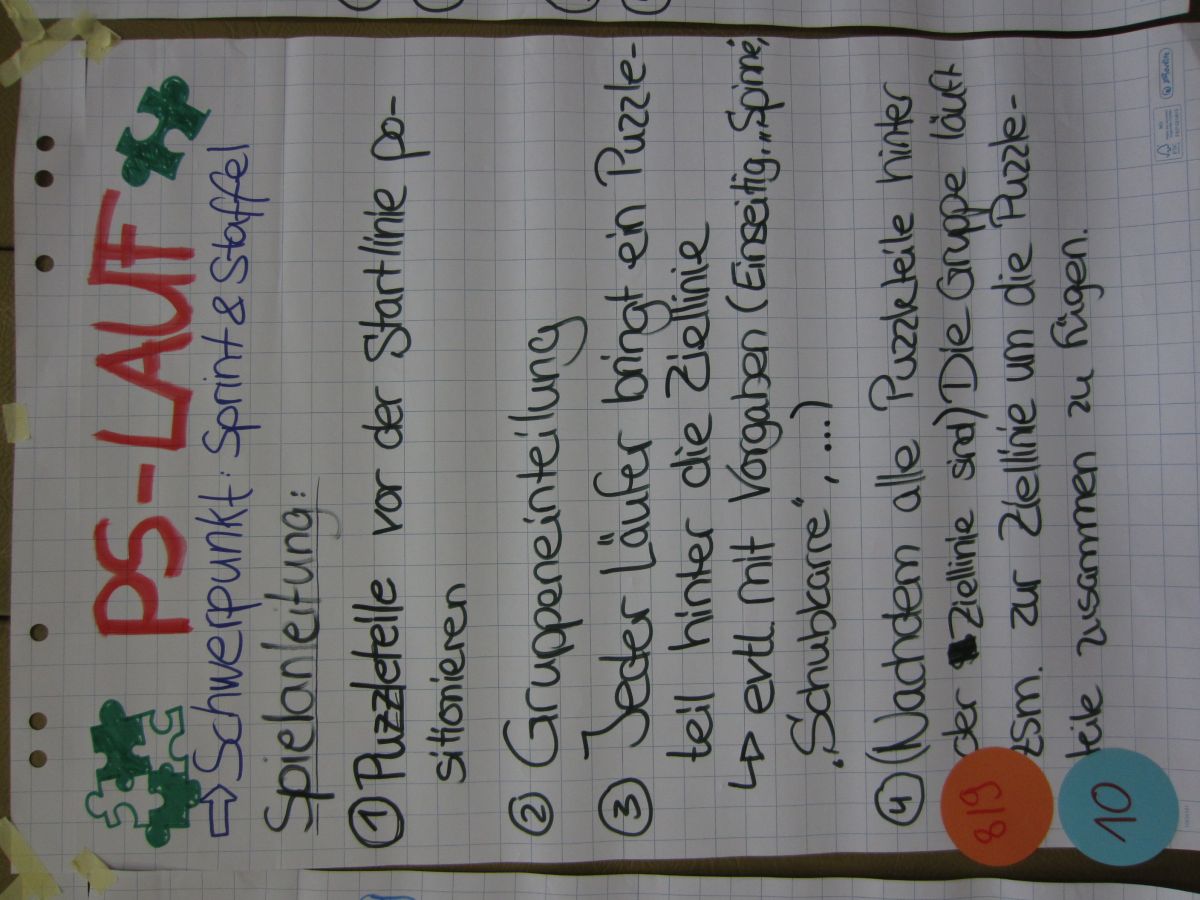 PS-LAUF
⇨ Schwerpunkt: Sprint & Staffel
Spielanleitung:
① Puzzleteile vor der Startlinie po-
sitionieren
② Gruppeneinteilung
③ Jeder Läufer bringt ein Puzzle-
teil hinter die Ziellinie
↳ evtl. mit Vorgaben (Einseitig, „Spinne“,
„Schubkarre“, ...)
④ (Nachdem alle Puzzleteile hinter
der Ziellinie sind) Die Gruppe läuft
zsm. zur Ziellinie um die Puzzle-
teile zusammen zu fügen.
8/9
10